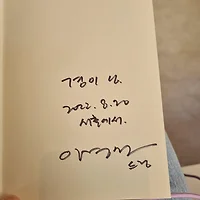 구경이 님.
2022. 8. 20
서울에서.
드림